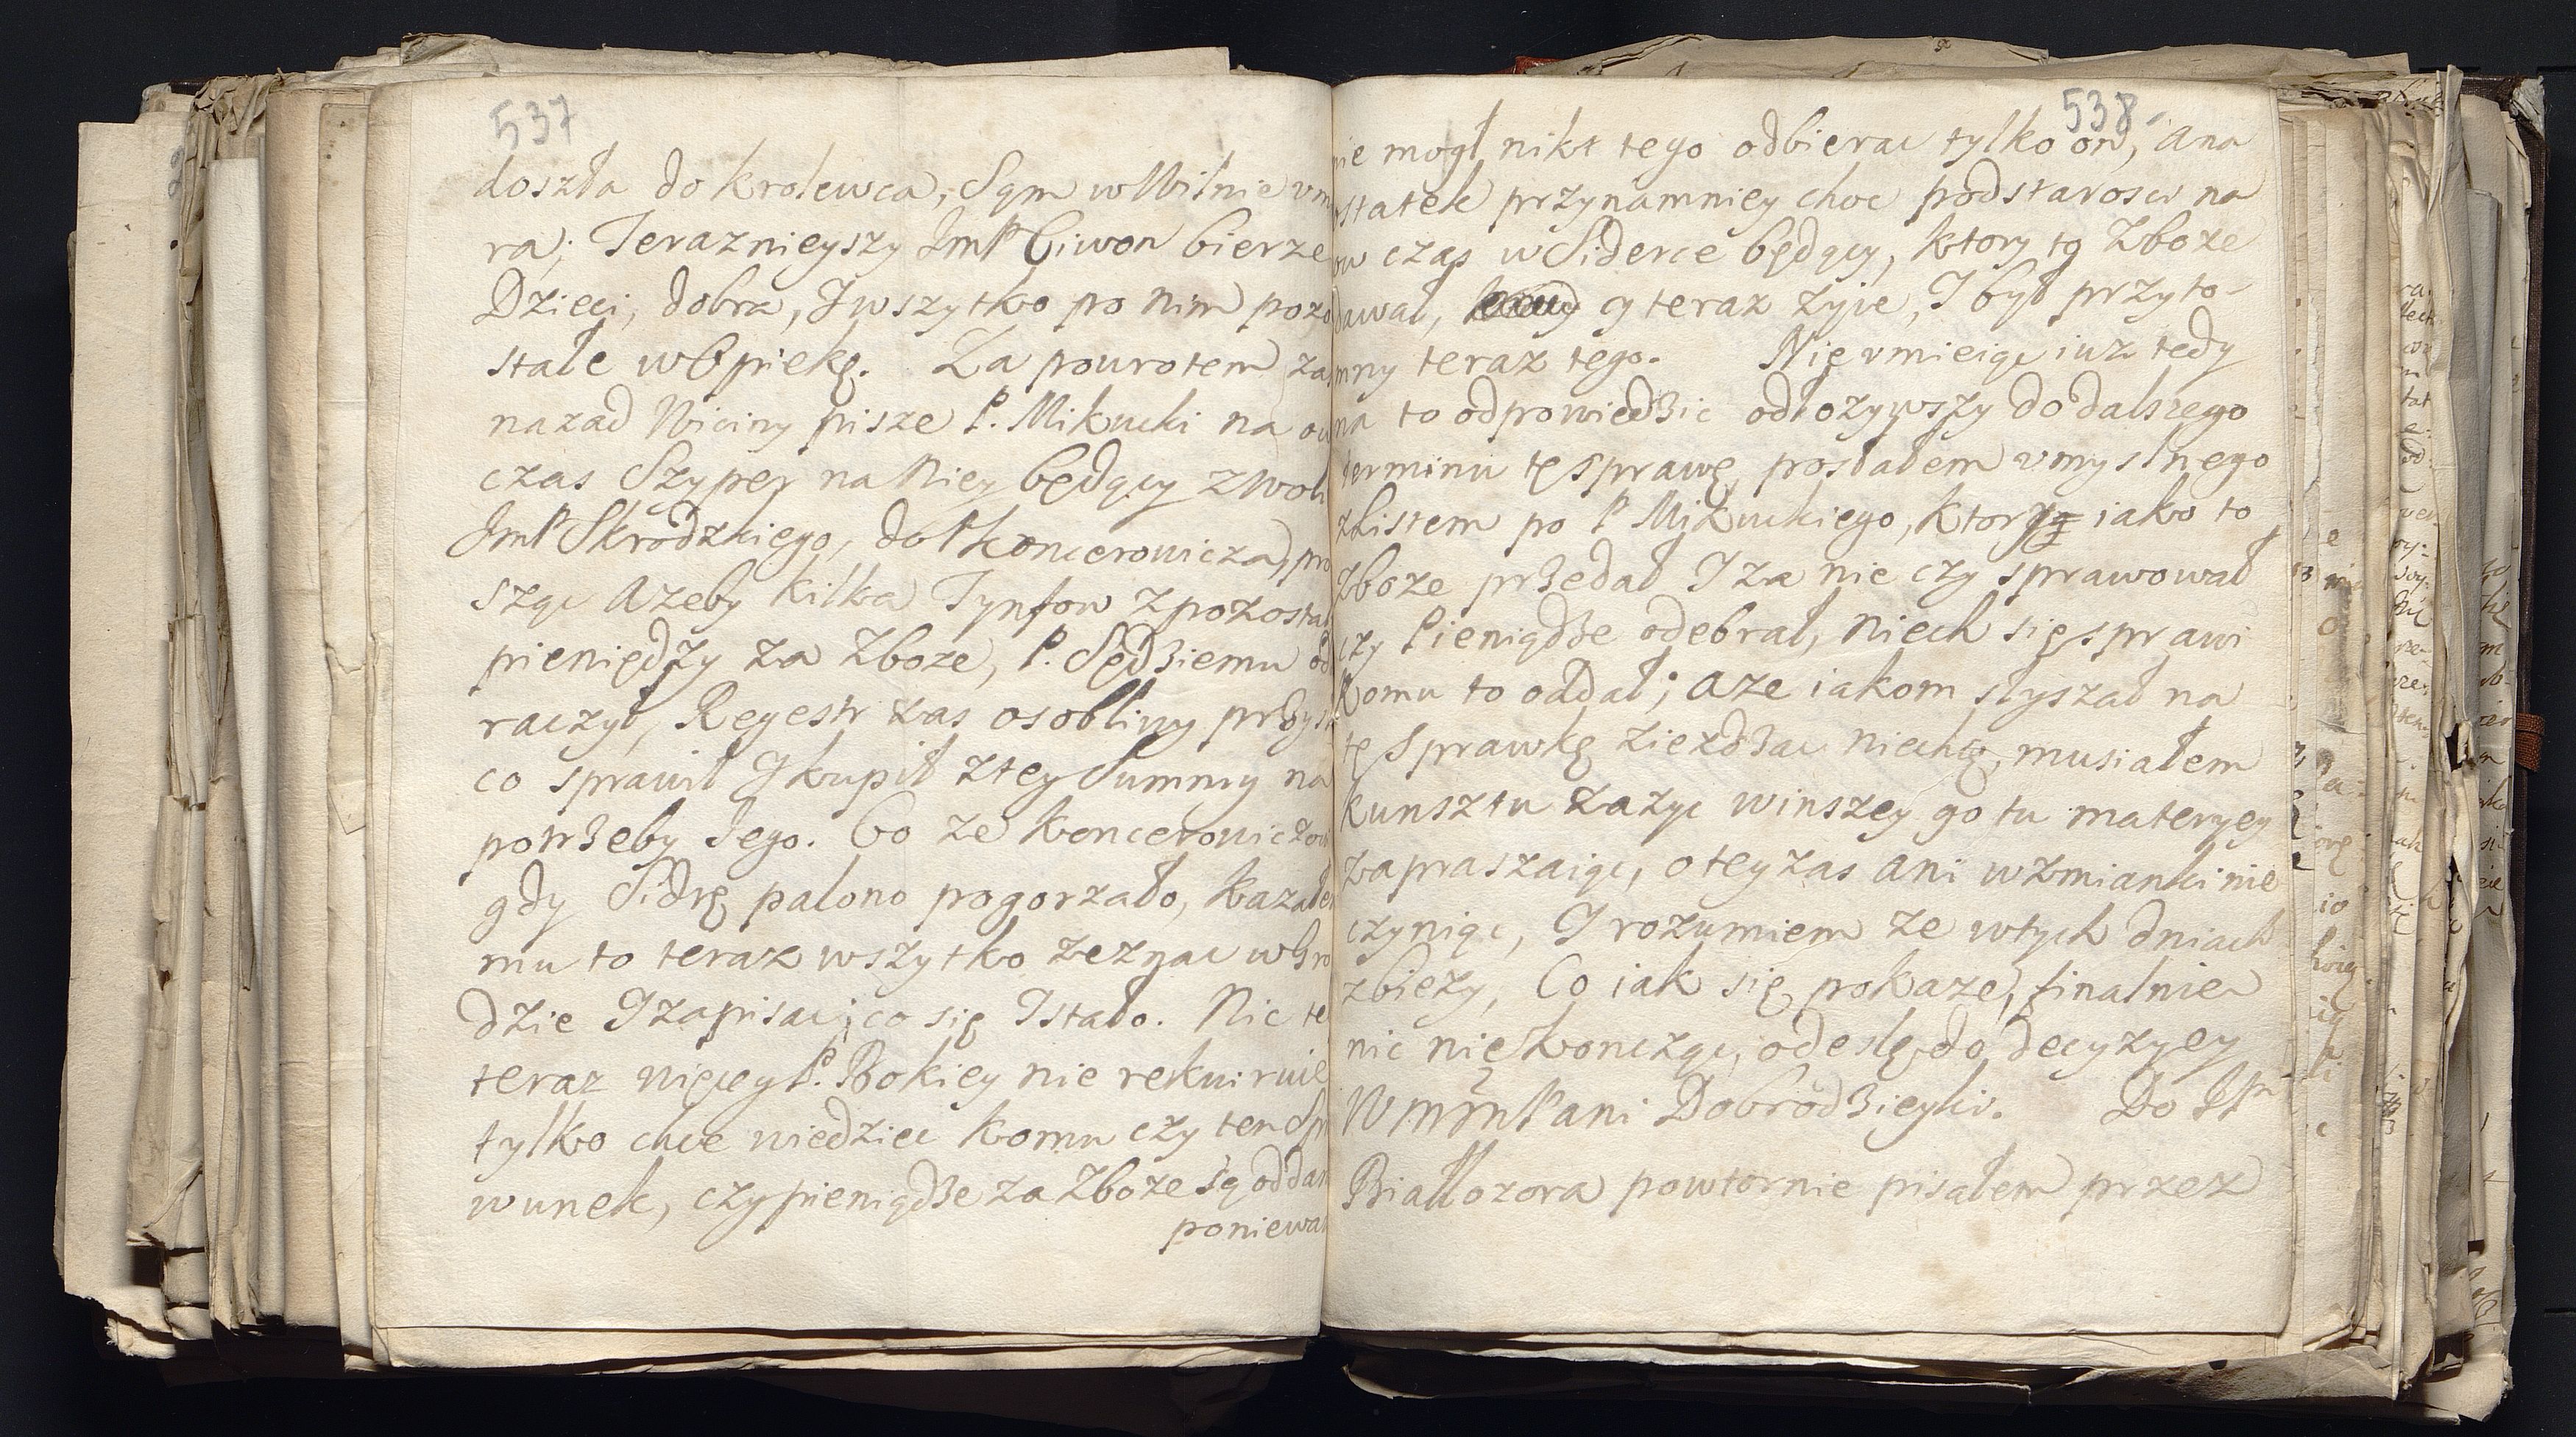 537
doszła do Krolewca, Sąm w Wilnie vm
ra; Teraznieyszy JmP Ciwon bierze
Dzieci, dobra, I wszytko po nim pozo
stałe w Opiekę. Za powrotem zas
nazad Wiciny pisze P. Mikucki na ow
czas Szyper na Niey będący z Woli
JmP Skrodzkiego, do P Koncerowicza, pro
sząc Azeby kilka Tynfow z pozostał
pieniędzy za Zboze, P. Sędziemu od
raczył, Regestr zas osobliwy przysł
co sprawił I kupił z tey Summy na
potrzeby Jego. Co ze Koncerowiczow
gdy Sidrę palono pogorzało, kazałem
mu to teraz wszytko zeznac w Gro
dzie I zapisac co się Istało. Nic te
teraz więcey P. Bokiey nie rekwiruie
tylko chce wiedziec komu czy ten Sp
wunek, czy pieniądze za Zboze są oddan
poniewa
538
nie mogł nikt tego odbierac tylko on, a na
ostatek przynamniey choc podstarosci na
ow czas w Siderce będący, ktory to Zboze
dawał, y teraz żyie, I był przyto-
mny teraz tego. Nie vmieiąc iuz tedy
na to odpowiedzic odłozywszy do dalszego
terminu tę sprawę, posłałem vmyslnego
z Listem po P Mikuckiego, ktory iako to
Zboze przedał I za nie czy sprawował
czy Pieniądze odebrał, niech się sprawi
komu to oddał; a ze iakom słyszał na
tę Sprawkę ziezdzac niechce, musiałem
kunsztu zazyc w inszey go tu materyey
zapraszaiąc, o tey zas ani wzmianki nie
czyniąc, I rozumiem ze w tych dniach
zbiezy, Co iak się pokaze, finalnie
nic nie koncząc, odeslę do decyzyey
WmmPani Dobrodzieyki. Do JP
Białłozora powtornie pisałem przez